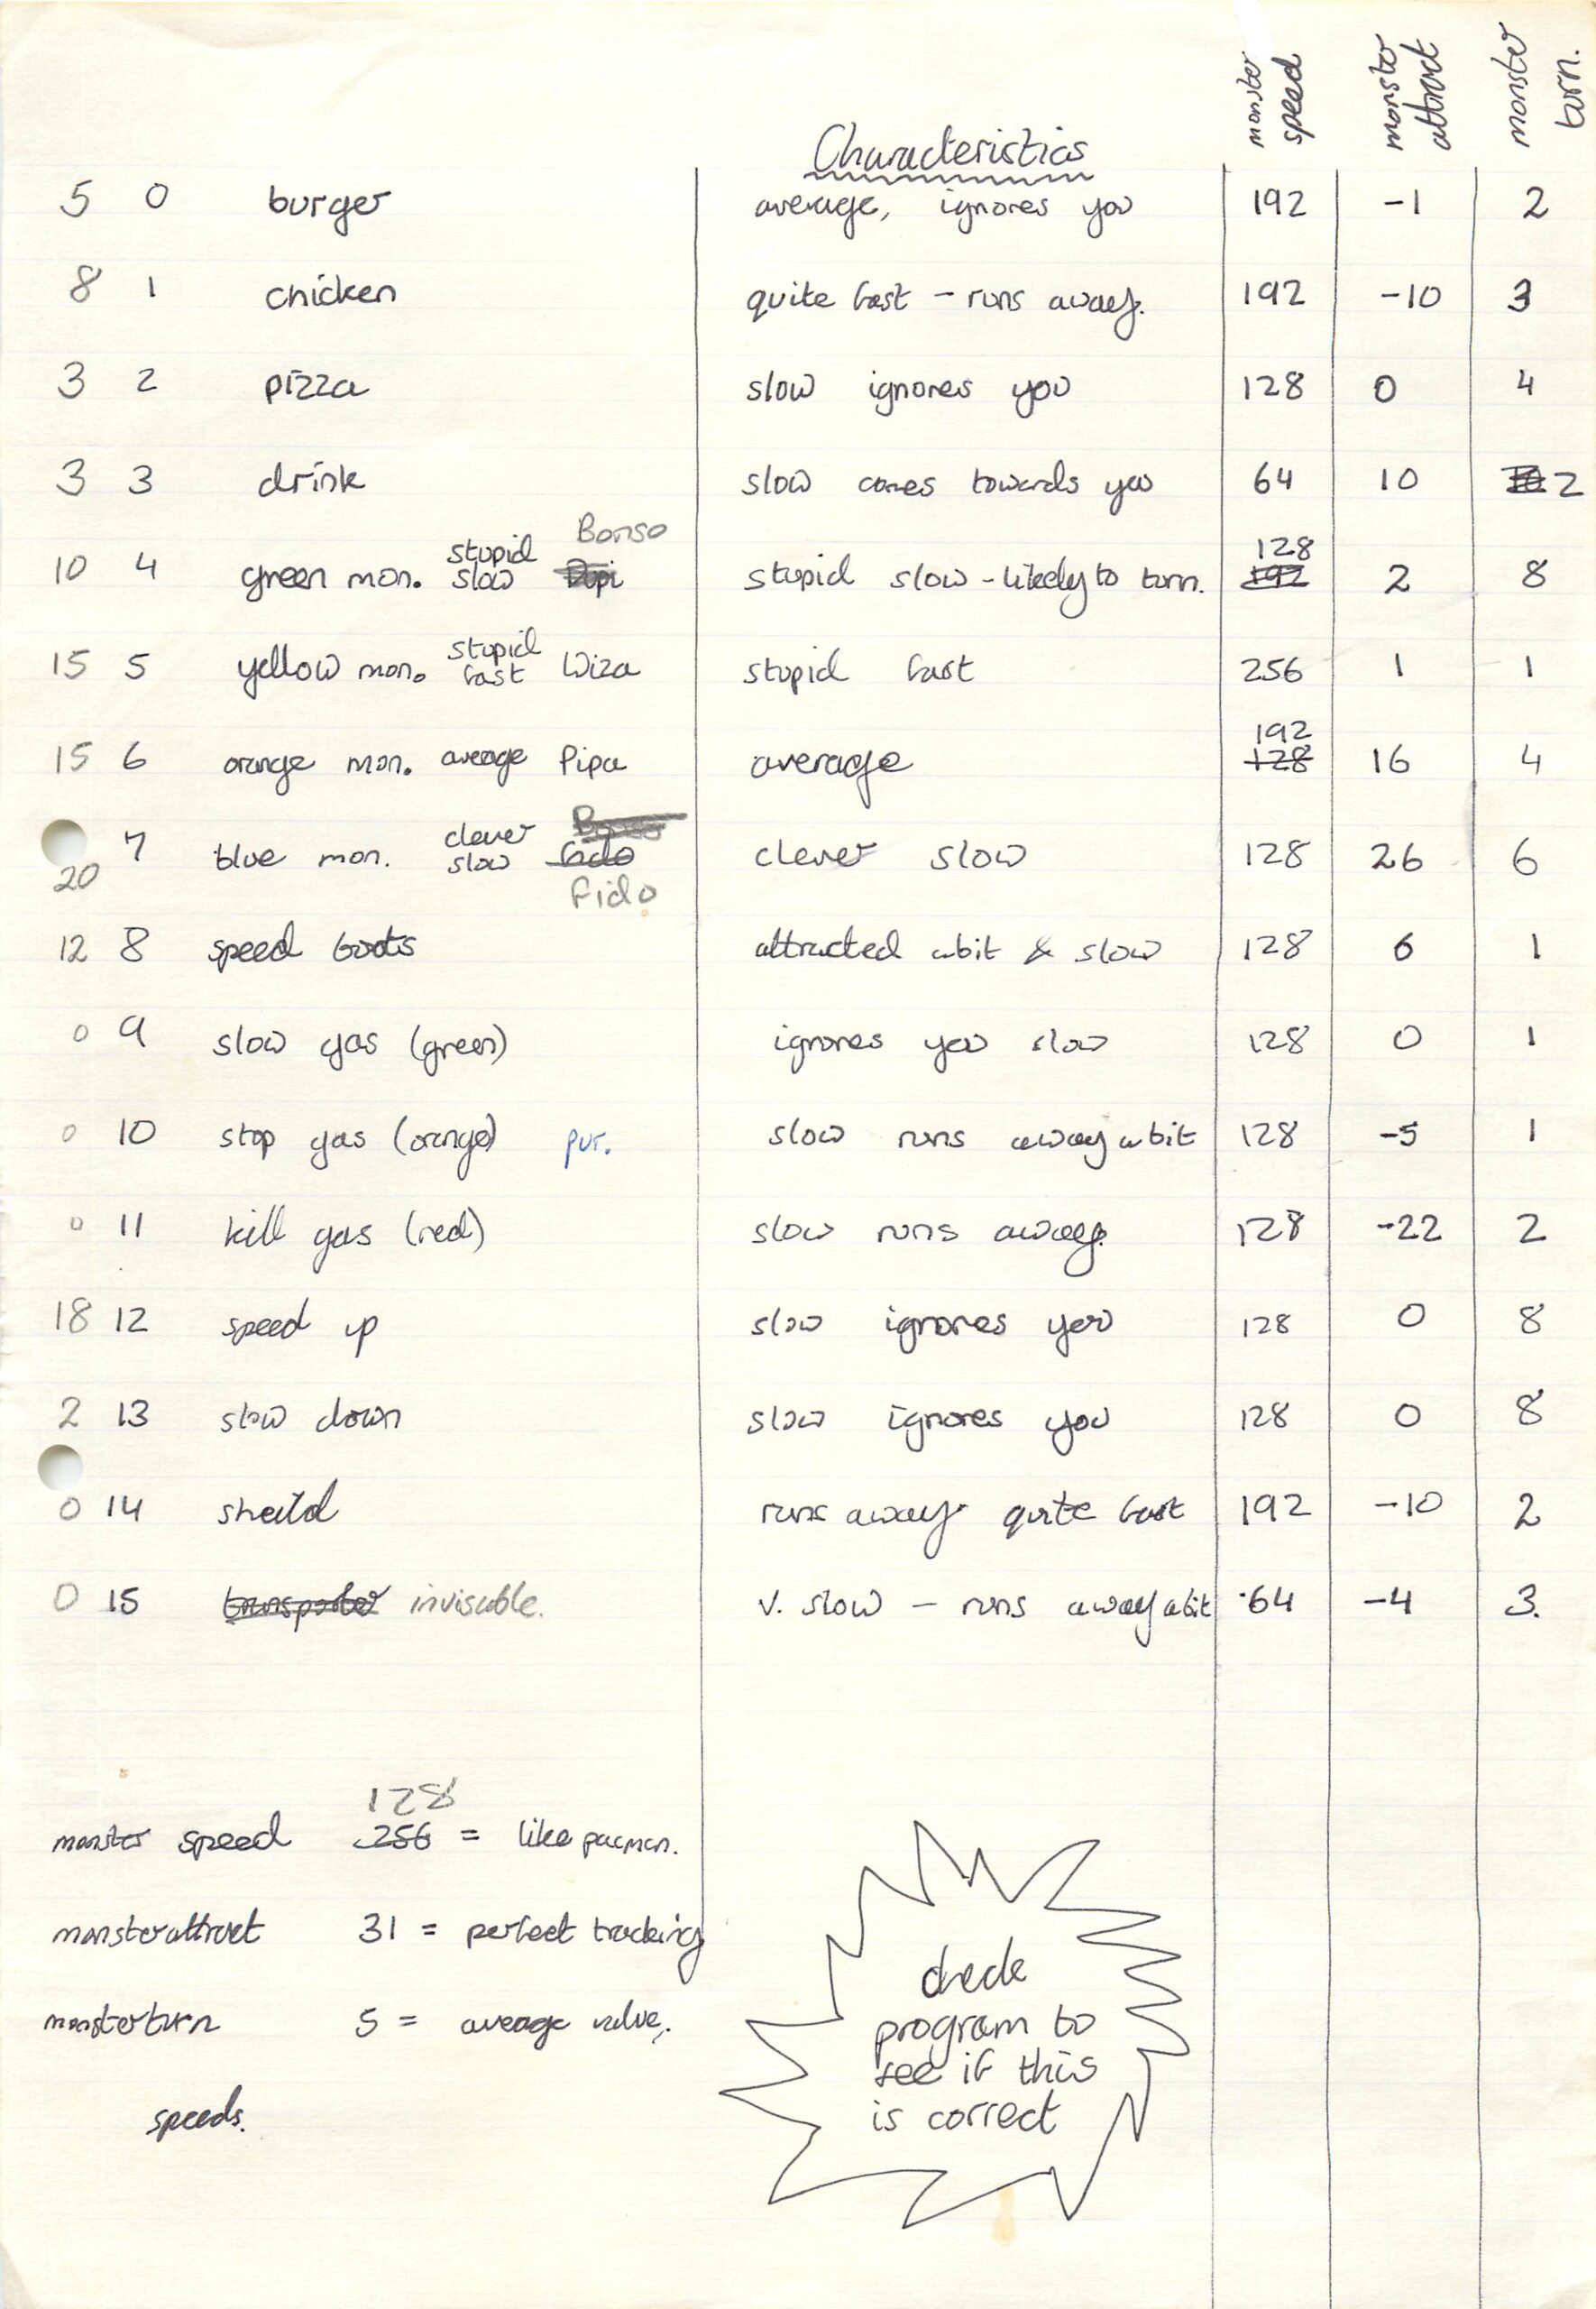 monster speed
monster attract
monster turn.
Characteristics
5 0 burger average, ignores you 192 -1 2
8 1 chicken quite fast - runs away. 192 -10 3
3 2 pizza slow ignores you 128 0 4
3 3 drink slow comes towards you 64 10 2
Bonso
10 4 green mon. stupid slow stupid slow - likely to turn. 128 192 2 8
15 5 yellow mon. stupid fast Wiza stupid fast 256 1 1
15 6 orange mon. average Pipa average 192 128 16 4
20 7 blue mon. clever slow clever slow 128 26 6
Fido
12 8 speed boots attracted abit & slow 128 6 1
0 9 slow gas (green) ignores you slow 128 0 1
0 10 stop gas (orange) pur. slow runs away abit 128 -5 1
0 11 kill gas (red) slow runs away. 128 -22 2
18 12 speed up slow ignores you 128 0 8
2 13 slow down slow ignores you 128 0 8
0 14 sheild runs away quite fast 192 -10 2
0 15 transporter invisable. v. slow - runs away abit 64 -4 3.
128
monster speed 256 = like pacman.
monster attract 31 = perfect tracking
monster turn 5 = average value.
speeds.
check
program to
see if this
is correct